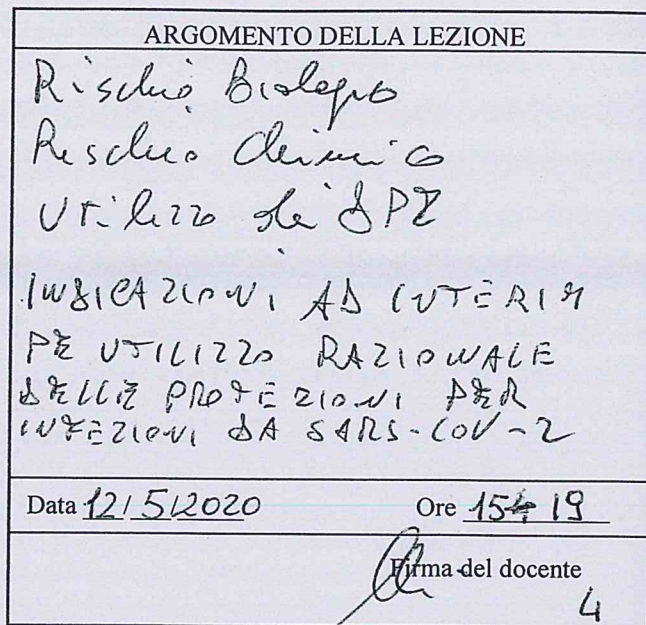 ARGOMENTO DELLA LEZIONE
Rischio Biologico
Rischio Chimico
Utilizzo dei DPI
INDICAZIONI AD INTERIM
PE UTILIZZO RAZIONALE
DELLE PROTEZIONI PER
INFEZIONI DA SARS-COV-2
Data 12/5/2020 Ore 15 19
Firma del docente
4